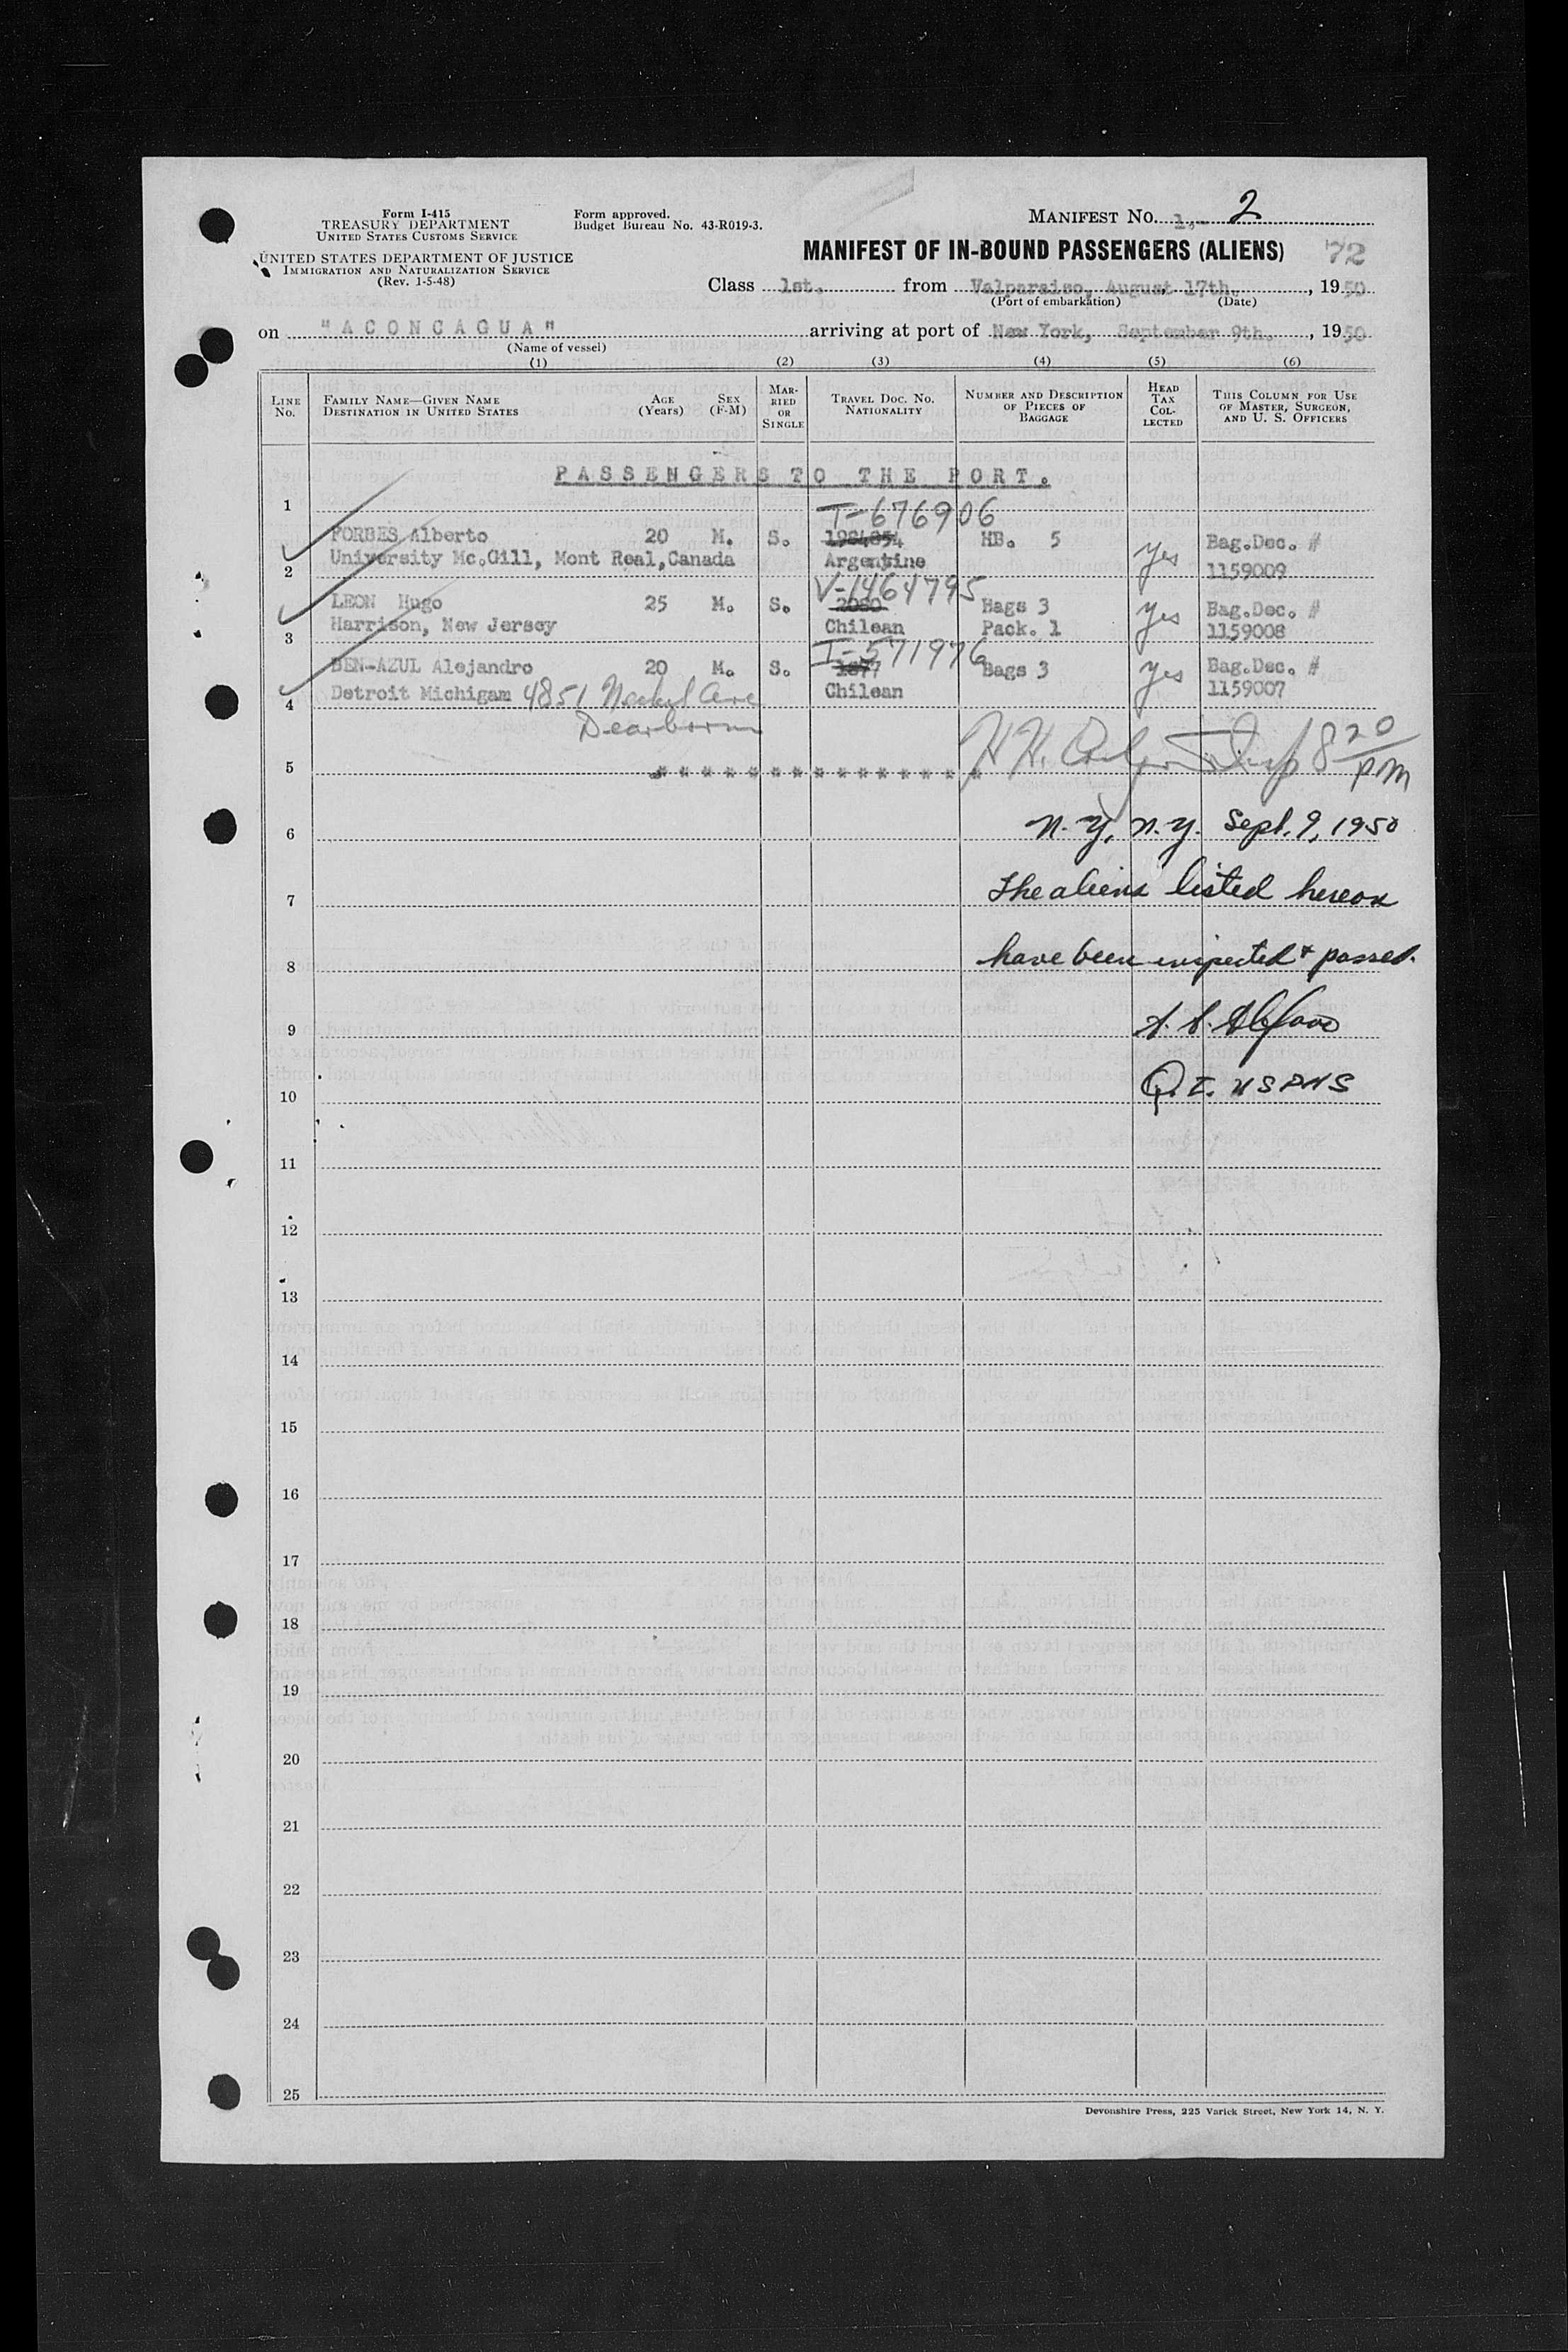 Form I-415
TREASURY DEPARTMENT
UNITED STATES CUSTOMS SERVICE
UNITED STATES DEPARTMENT OF JUSTICE
IMMIGRATION AND NATURALIZATION SERVICE
(Rev. 1-5-48)
Form approved.
Budget Bureau No. 43-R019-3.
MANIFEST NO. 1.- 2
MANIFEST OF IN-BOUND PASSENGERS (ALIENS) 72
Class 1st. from Valparaiso, August 17th. , 1950
(Port of embarkation) (Date)
on "ACONCAGUA" arriving at port of New York, September 9th. , 1950
(Name of vessel)
(1) (2) (3) (4) (5) (6)
LINE No. FAMILY NAME—GIVEN NAME DESTINATION IN UNITED STATES AGE (Years) SEX (F-M) MARRIED OR SINGLE TRAVEL DOC. NO. NATIONALITY NUMBER AND DESCRIPTION OF PIECES OF BAGGAGE HEAD TAX COLLECTED THIS COLUMN FOR USE OF MASTER, SURGEON, AND U. S. OFFICERS
PASSENGERS TO THE PORT.
1
I-676906
FORBES Alberto 20 M. S. 1984854 HB. 5 yes Bag.Dec. #
2 University Mc.Gill, Mont Real,Canada Argentine 1159009
V-1464795
LEON Hugo 25 M. S. 2080 Bags 3 yes Bag.Dec. #
3 Harrison, New Jersey Chilean Pack. 1 1159008
I-571976
BEN-AZUL Alejandro 20 M. S. 1877 Bags 3 yes Bag.Dec. #
4 Detroit Michigam 4851 Ave Chilean 1159007
Dearborn
H.H. Insp 8 20/pm
5 * * * * * * * * * * * * * * *
6 N.Y, N.Y. Sept. 9, 1950
7 The aliens listed hereon
8 have been inspected + passed.
9
10 Q.I. USPHS
11
12
13
14
15
16
17
18
19
20
21
22
23
24
25
Devonshire Press, 225 Varick Street, New York 14, N. Y.